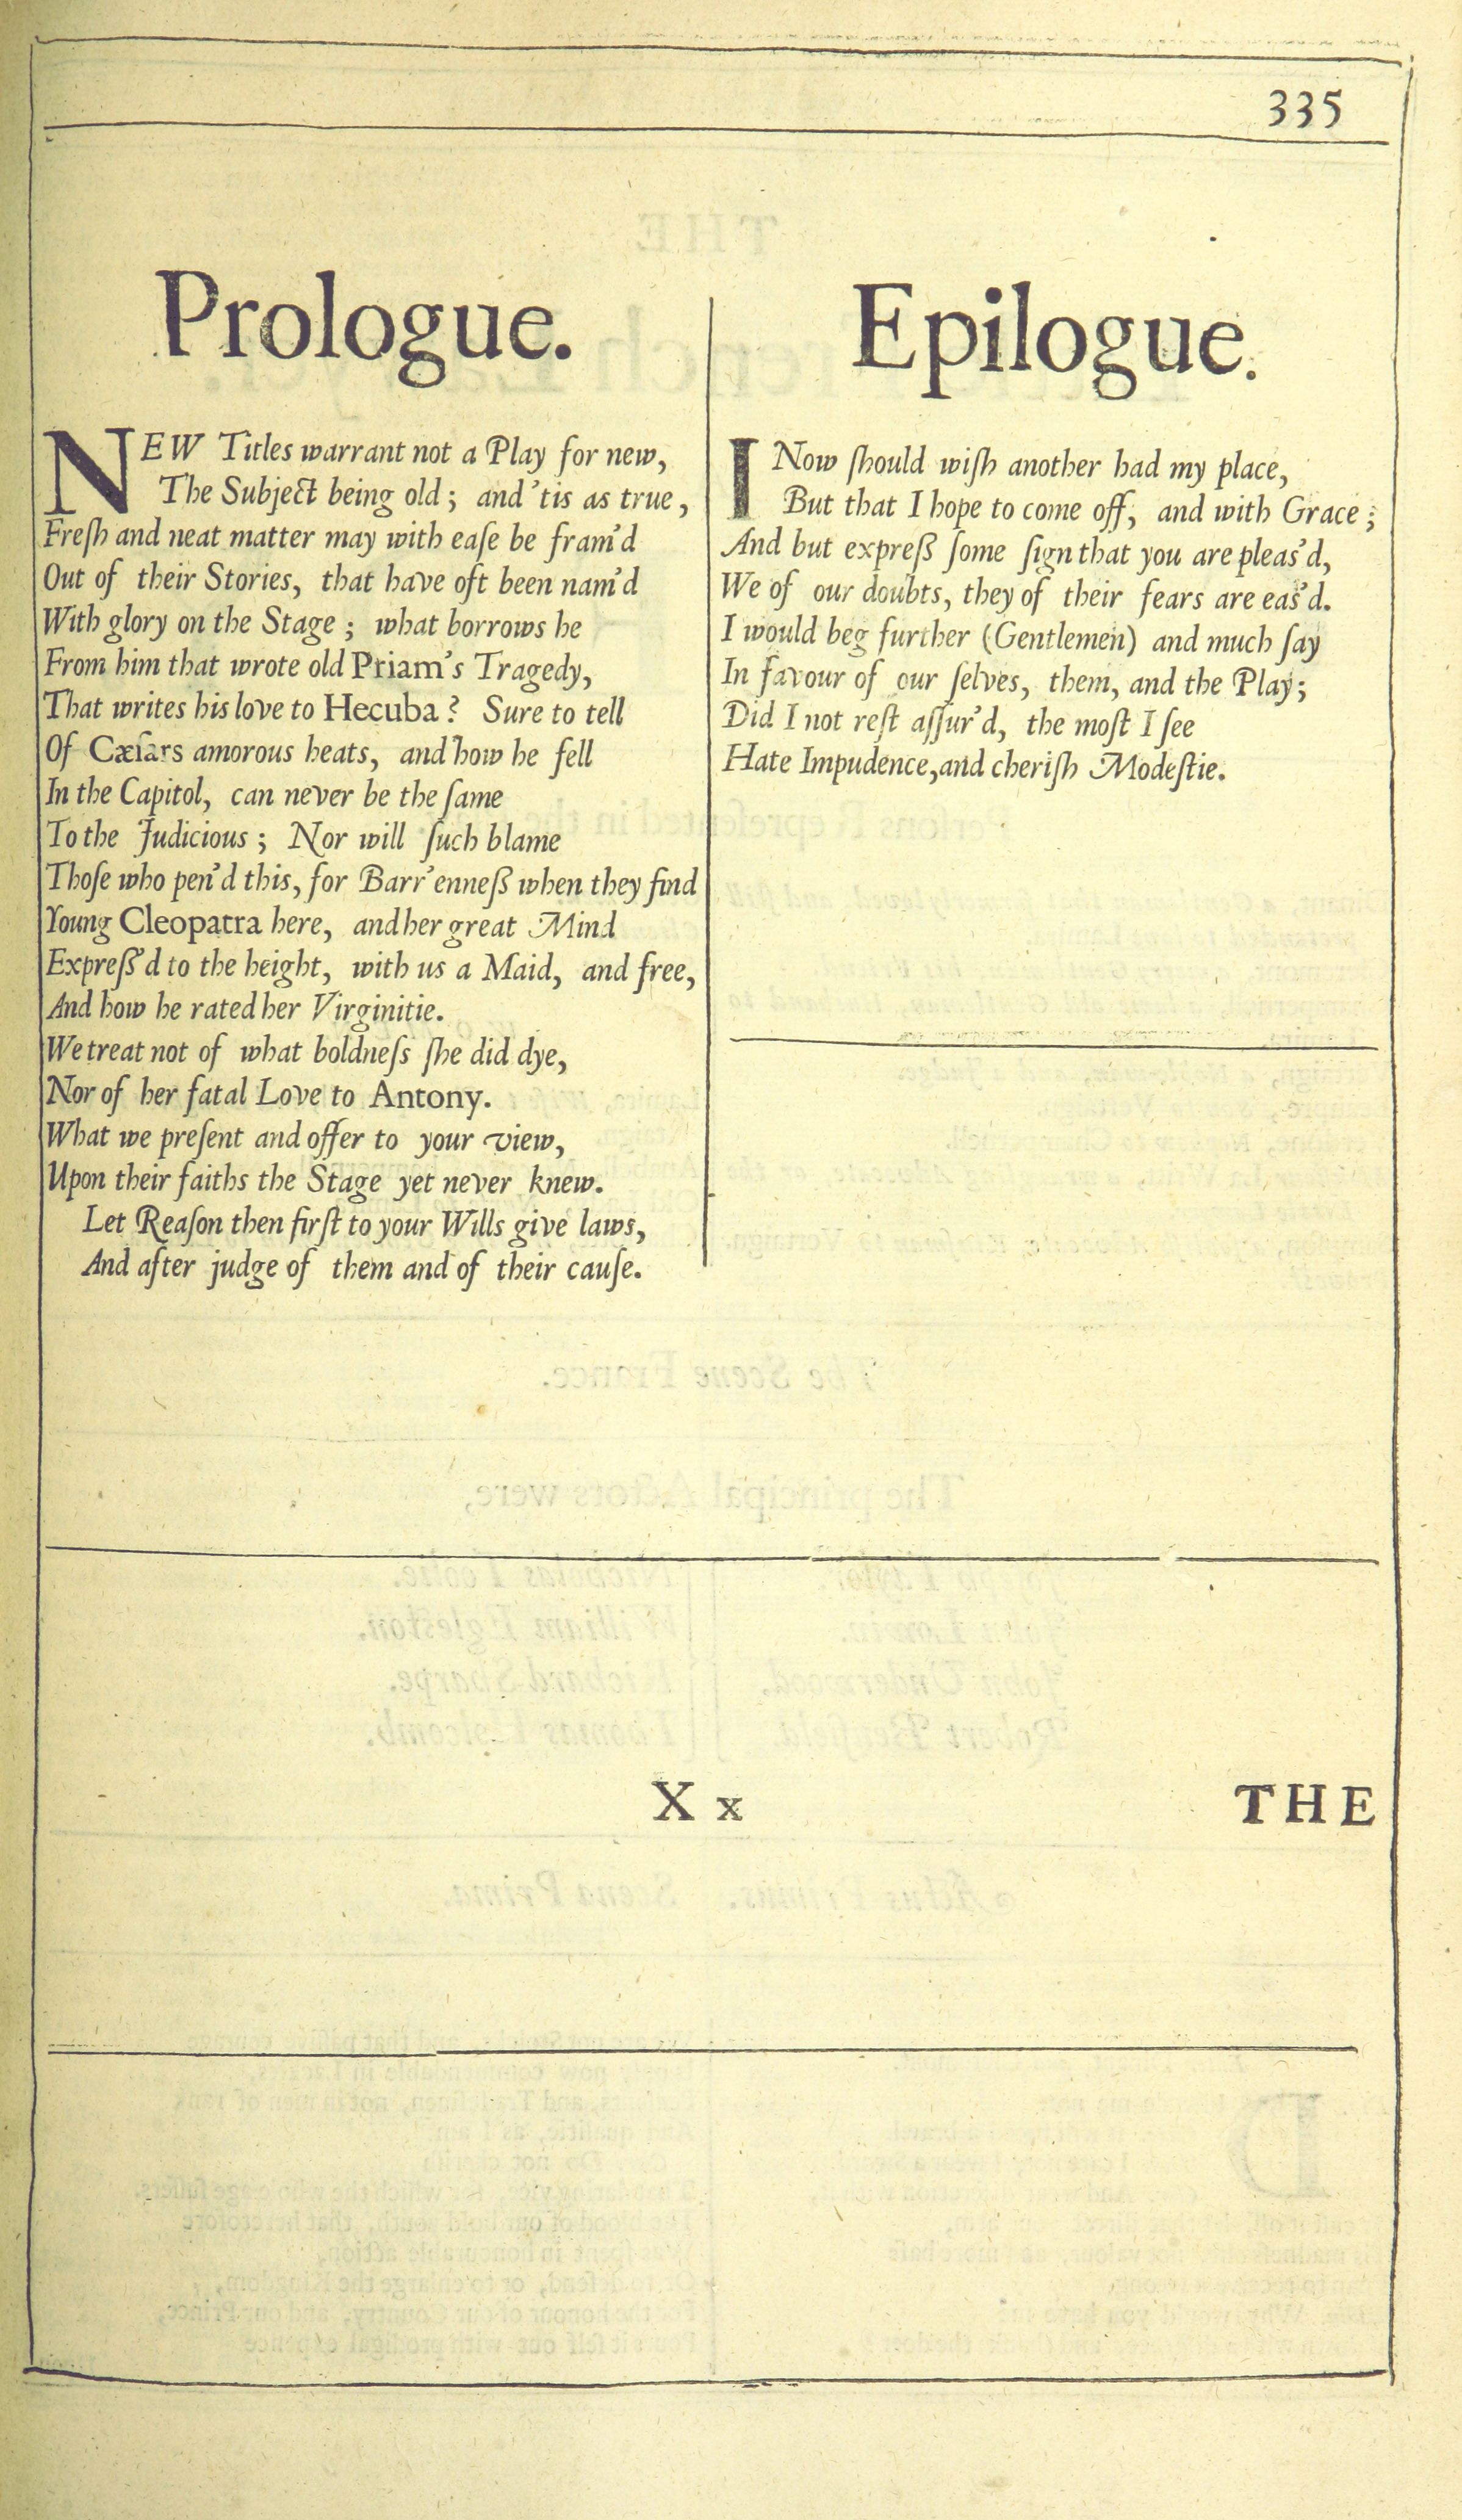 335
Prologue.
NEW Titles warrant not a Play for new,
The Subject being old; and 'tis as true,
Freſh and neat matter may with eaſe be fram'd
Out of their Stories, that have oft been nam'd
With glory on the Stage; what borrows he
From him that wrote old Priam's Tragedy,
That writes his love to Hecuba? Sure to tell
Of Cæſars amorous heats, and how he fell
In the Capitol, can never be the ſame
To the Judicious; Nor will ſuch blame
Thoſe who pen'd this, for Barr'enneß when they find
Young Cleopatra here, and her great Mind
Expreß'd to the height, with us a Maid, and free,
And how he rated her Virginitie.
We treat not of what boldneſs ſhe did dye,
Nor of her fatal Love to Antony.
What we preſent and offer to your view,
Upon their faiths the Stage yet never knew.
Let Reaſon then firſt to your Wills give laws,
And after judge of them and of their cauſe.
Epilogue.
I Now ſhould wiſh another had my place,
But that I hope to come off, and with Grace;
And but expreß ſome ſign that you are pleas'd,
We of our doubts, they of their fears are eas'd.
I would beg further (Gentlemen) and much ſay
In favour of our ſelves, them, and the Play;
Did I not reſt aſſur'd, the moſt I ſee
Hate Impudence, and cheriſh Modeſtie.
X x
THE